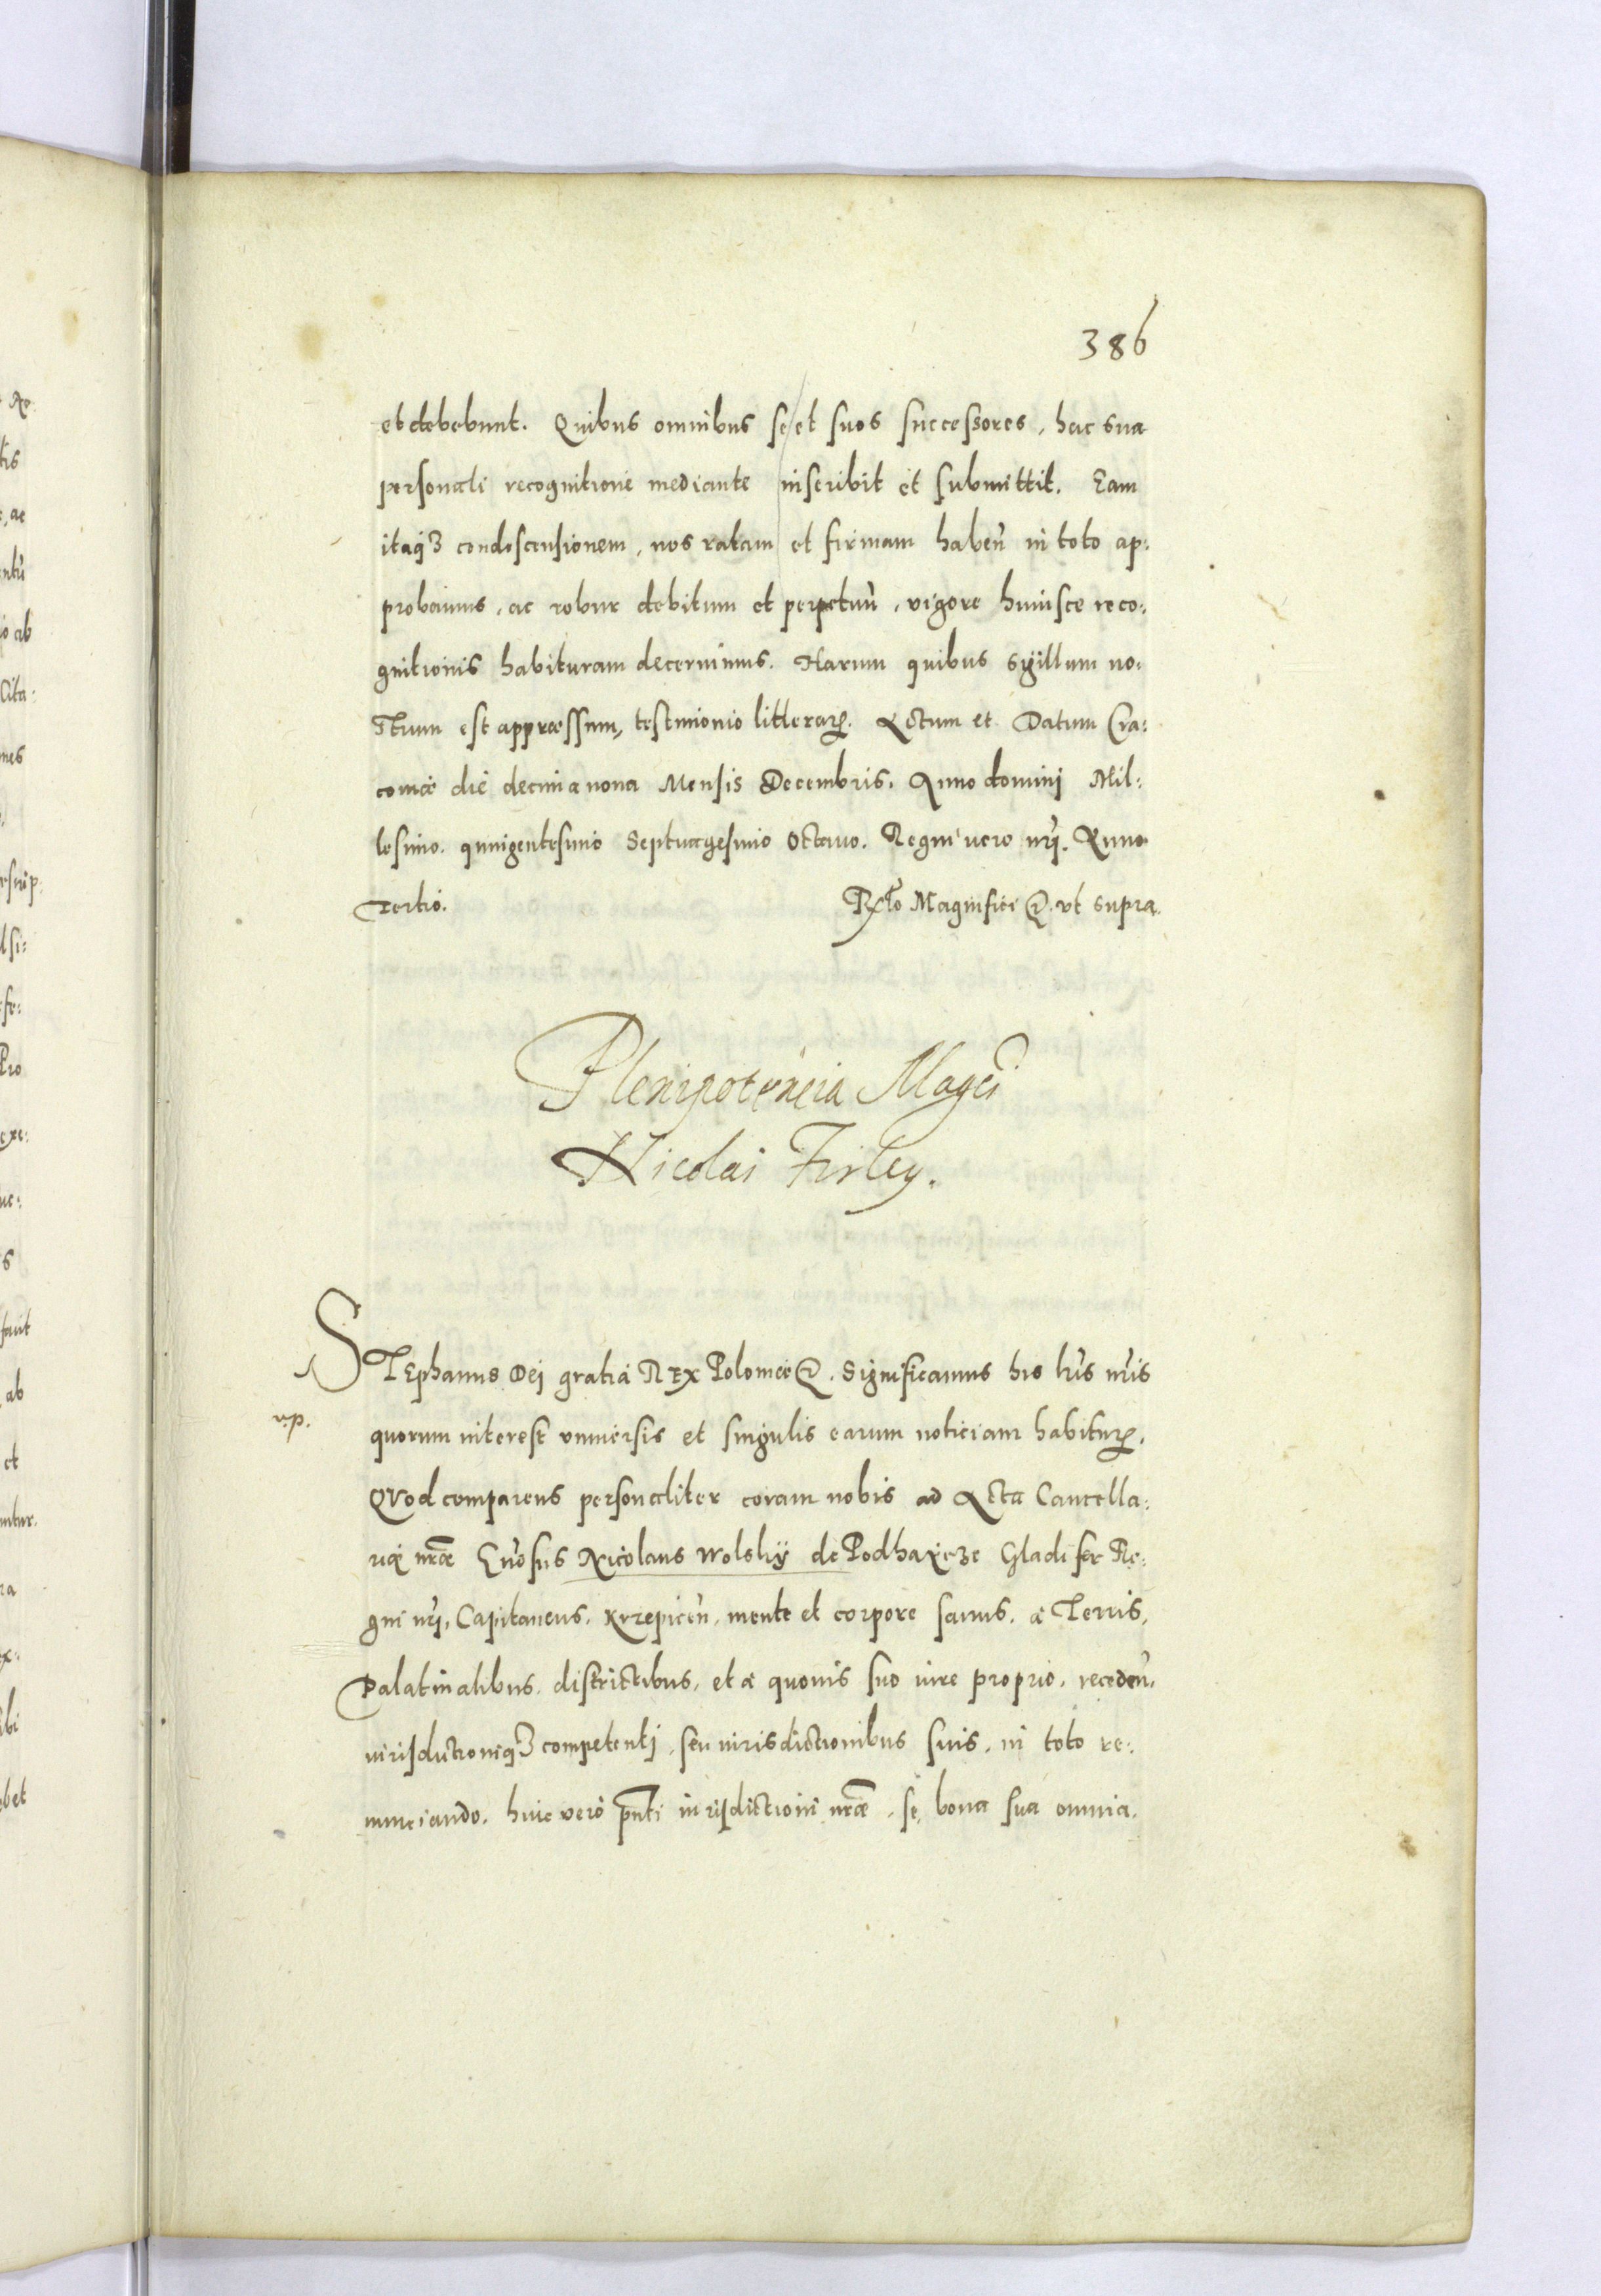 386
et debebunt. Quibus omnibus se et suos successores, hac sua
personali recognitione mediante inscribit et submittit. Eam
itaqʒ condescensionem, nos ratam et firmam habeñ in toto ap:
probamus, ac robur debitum et perpetuũ, vigore huiusce reco:
gnitionis habituram decernimus. Harum quibus sigillum no:
strum est appræssum, testimonio litterarꝝ. Actum et Datum Cra:
coviæ die decima nona Mensis Decembris. Anno domini Mil:
lesimo. quingentesimo Septuagesimo Octavo. Regni vero nrĩ. Anno
Tertio.
Rxᵗᵒ Magnifici &. vt supra.
Plenipotencia Magci
Nicolai Firley.
STEphanus Dei gratia REx Poloniæ &. Significamus his lrĩs nrĩs
v.p.
quorum interest vniuersis et singulis earum noticiam habiturꝝ.
QVod comparens personaliter coram nobis ad Acta Cancella:
riæ nr̃æ Gñosus Nicolaus Wolskÿ de Podhaÿcze Gladifer Re:
gni nrĩ, Capitaneus. Krzepiceñ, mente et corpore sanus. a Terris,
Palatinatibus, districtibus, et a quouis suo iure proprio, recedeñ.
iurisdictioniqʒ competenti, seu iurisdictionibus suis, in toto re:
nunciando. huic vero pñti iurisdictioni nr̃æ, se, bona sua omnia.